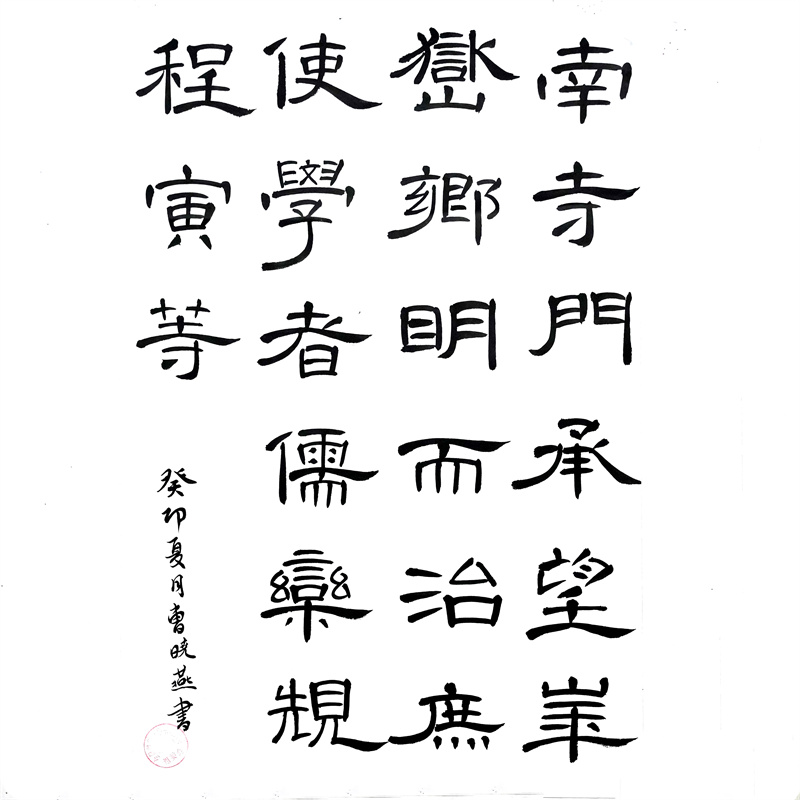 南寺門承望崋
嶽鄉明而治庶
使學者儒欒規
程寅等
癸卯夏月曹晓燕書